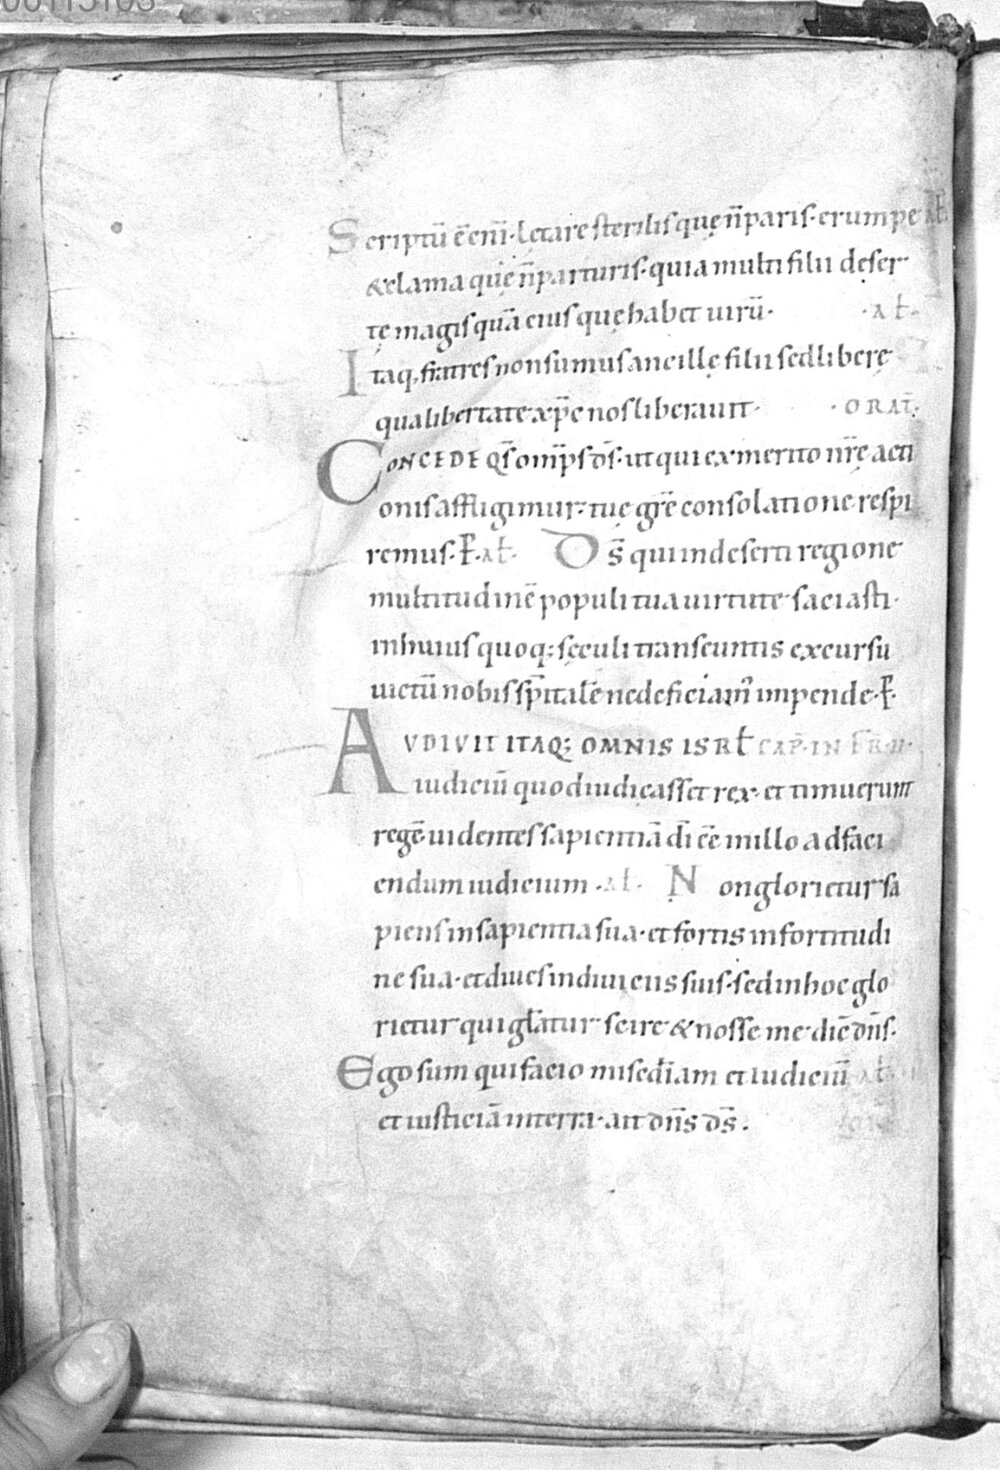 00115108
Scriptū ē enī· Lętare sterilis quę n̄ paris· erumpe
& clama quę n̄ parturis· quia multi filii deser
tę magis quā eius quę habet uirū· ·ał·
Itaq, fratres non sumus ancillę filii sed liberę
qua libertate xp̄c nos liberauit· ·ORAT̄·
CONCEDE qs̄ omp̄s ds̄· ut qui ex merito nr̄ę acti
onis affligimur· tuę gr̄ę consolatione respi
remus· P̄· ał· Ds̄ qui in deserti regione
multitudinē populi tua uirtute saciasti·
in huius quoq; sęculi transeuntis excursu
uictū nobis sp̄italē ne deficiam̄ impende· P̄·
AVDIVIT ITAQ; OMNIS ISRŁ CAP̄· IN
iudiciū quod iudicasset rex· et timuerunt
regē uidentes sapientiā dī eē in illo ad faci
endum iudicium ·ał· Non glorietur sa
piens in sapientia sua· et fortis in fortitudi
ne sua· et diues in diuiciis suis· sed in hoc glo
rietur qui głatur scire & nosse me· dic̄ dn̄s·
Ego sum qui facio misedīam et iudiciū ał
et iusticiā in terra· ait dn̄s ds̄.